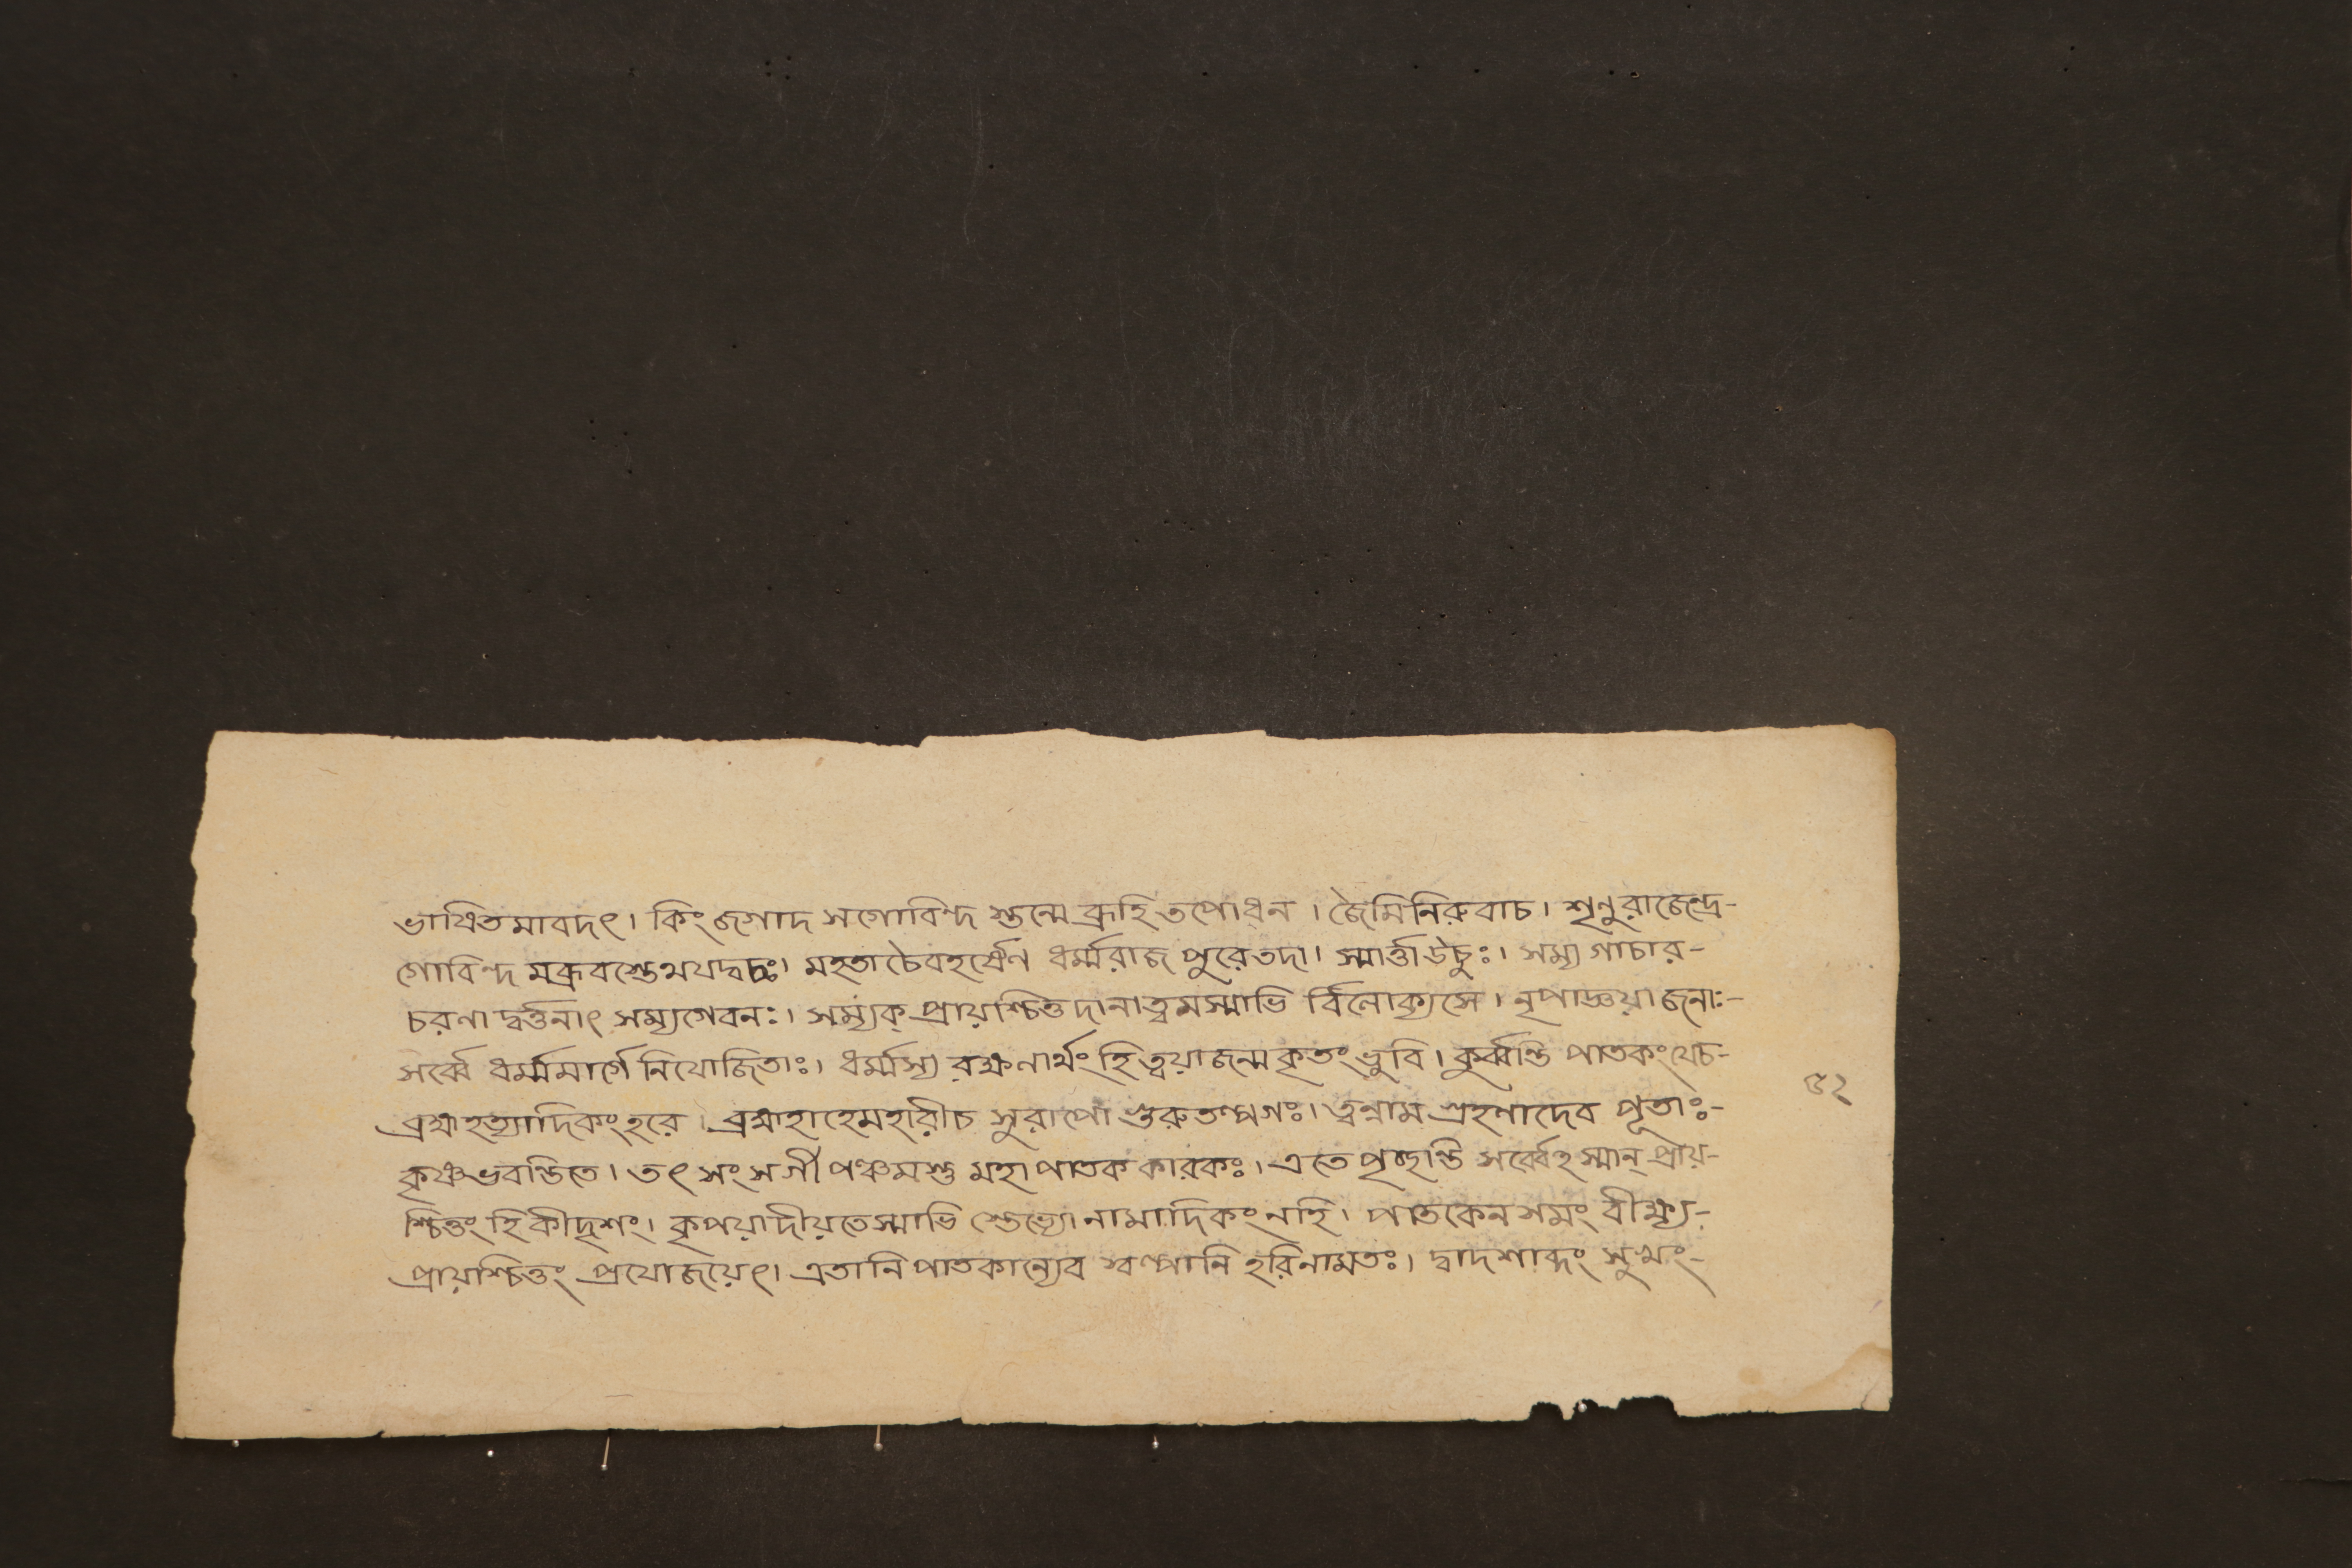 ভাষিতমাবদৎ। কিং জগাদ সগোবিন্দ স্তন্মে ব্রূহি তপোধন। জৈমিনিরুবাচ। শৃনুরাজেন্দ্র-
গোবিন্দ মব্রুবংস্তেঽথযদ্বচঃ। মহতা চৈবহর্ষেণ ধর্ম্মরাজ পুরেতদা। স্মার্ত্তা উচুঃ। সম্য গাচার-
চরণা দ্বর্ত্তনাৎ সম্যগেবনঃ। সম্যক্ প্রায়শ্চিত্ত দানাত্ত্বমস্মাভি র্বিলোক্যসে। নৃপাজ্ঞয়া জনাঃ-
সর্ব্বে ধর্ম্মমার্গে নিযোজিতাঃ। ধর্ম্মস্য রক্ষণার্থং হি ত্বয়াজন্ম কৃতং ভুবি। কুর্ব্বন্তি পাতকং যেচ-
ব্রহ্মহত্যাদিকং হরে। ব্রহ্মহা হেমহারীচ সুরাপো গুরুতল্পগঃ। ত্বন্নাম গ্রহণাদেব পূতাঃ-
কৃষ্ণভবন্তিতে। তৎ সংসর্গী পঞ্চমস্তু মহাপাতক কারকঃ। এতে পৃচ্ছন্তি সর্ব্বেহস্মান্ প্রায়-
শ্চিত্তং হি কীদৃশং। কৃপয়াদীয়তেস্মাভি স্তেভ্যো নামাদিকং নহি। পাতকেন সমং বীক্ষ্য-
প্রায়শ্চিত্তং প্রযোজয়েৎ। এতানি পাতকান্যেব স্বল্পানি হরিনামতঃ। দ্বাদশাব্দং